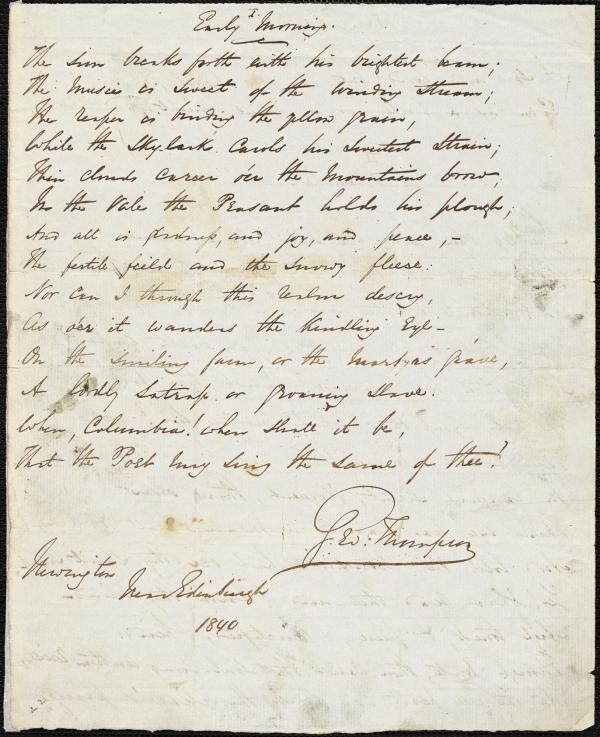 I
Early Morning.
The sun breaks forth with his brightest beam;
The music is sweet of the winding stream;
The reaper is binding the yellow grain,
While the Skylark carols his sweetest strain;
Thin clouds career o'er the Mountains brow;
In the Vale the Peasant holds his plough;
And all is gladness, and joy, and peace,—
The fertile feild and the snowy fleece:
Nor can I through this realm descry,
As o'er it wanders the kindling Eye—
On the smiling farm, or the Martyrs grave,
A lordly Satrap or groaning Slave.
When, Columbia! when shall it be,
That the Poet may sing the same of thee?
Geo. Thompson
Newington
Near Edinburgh
1840